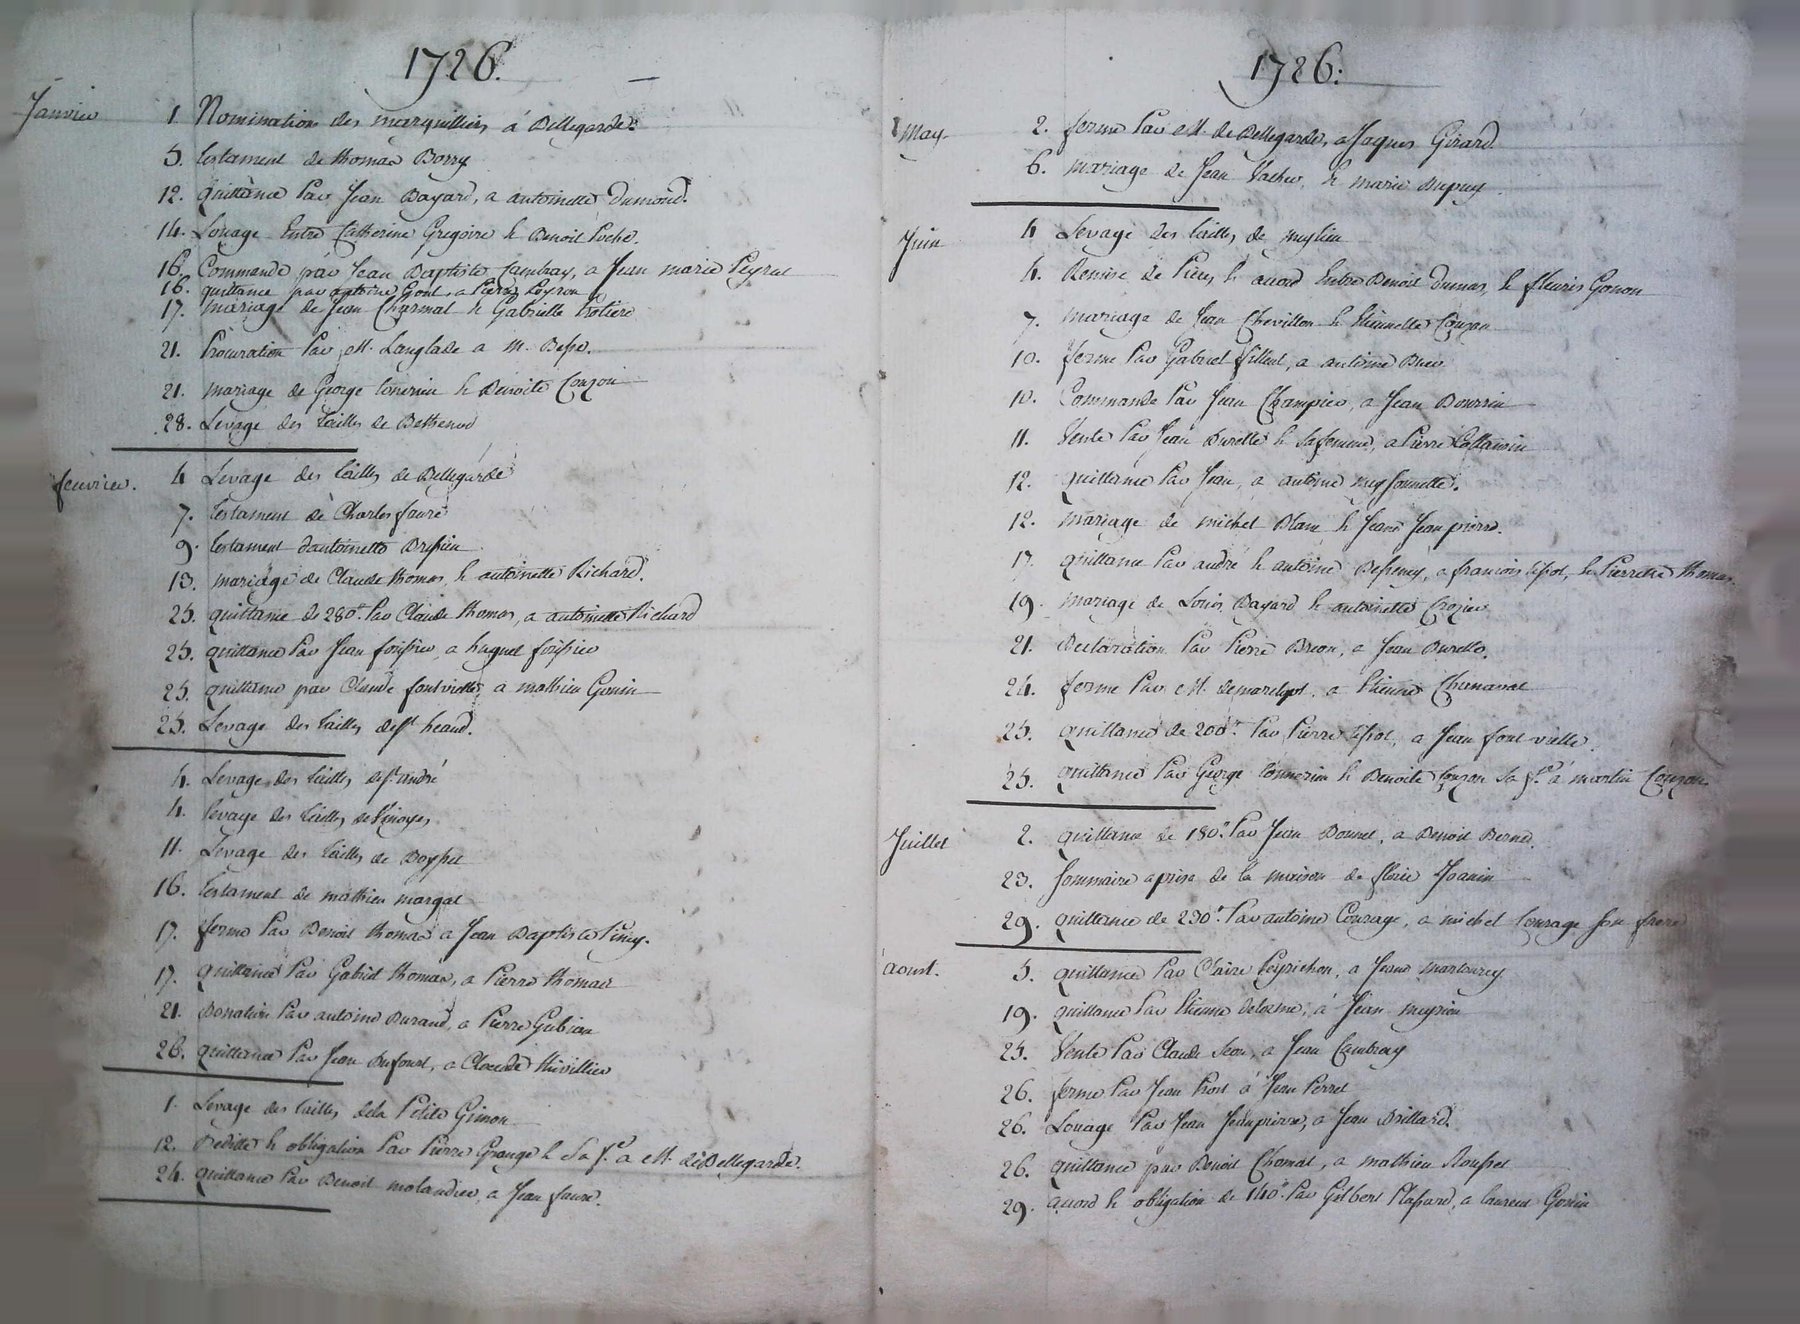 1726.
Janvier 1. Nomination des marguilliers á Bellegarde.
5. testament de thomas Borry
12. quittance Par Jean Bayard, a antoinette dumond.
14. Louage Entre Catherine Gregoire & Benoit Poche.
16. Commande par Jean Baptiste Cambray, a Jean marie Peyrat
16. quittance par antoine Gont, a Pierre Peyron
17. mariage de Jean Charmat & Gabrielle Protiere
21. Procuration Par M. Langlade a M. Besse.
21. mariage de George tonnerieu & Benoite Couzon
28. Levage des tailles de Bethenod
feuvrier. 4 Levage des tailles de Bellegarde
7. testament de Charles faure
9. testament d'antoinette Brissieu
13. mariage de Claude thomas, & antoinette Richard.
25. quittance de 280tt. Par Claude thomas, a antoinette Richard
25. quittance Par Jean foissier, a huguet foissier
25. quittance par Claude fontvielle, a mathieu Gonin
25. Levage des tailles de st heand.
4. Levage des tailles de st andré
4. Levage des tailles de
11. Levage des tailles de Boysset
16. testament de mathieu margat
17. ferme Par Benoit thomas a Jean Baptiste Piney.
17. quittance Par Gabriel thomas, a Pierre thomas
21. Donation Par antoine Durand, a Pierre Gubian
26. quittance Par Jean Dufourt, a Claude thivillier
1. Levage des tailles de la Petite Gimon
12. Deditte & obligation Par Pierre Grange & Sa fe. a M. de Bellegarde.
24. quittance Par Benoit molandier, a Jean faure.
1726.
May 2. ferme Par M. de Bellegarde, a Jaques Girard
6. mariage de Jean Vacher, & marie Dupuy
Juin 4 Levage des tailles de meylieu
4. Remise de Pieces, & acord Entre Benoit dumas, & fleuris Gonon
7. mariage de Jean Chevillon & Etiennette Couzon
10. ferme Par Gabriel filleul, a antoine Buer
10. Commande Par Jean Champier, a Jean Bourrin
11. Vente Par Jean Durelle & sa femme, a Pierre
12. quittance Par Jean, a antoine meyssonnette.
12. mariage de michel Blanc & Jeane Jeanpierre.
17. quittance Par andré & antoine, a francois Epot, & Pierrette thomas.
19. mariage de Louis Bayard & antoinette Crozier
21. Declaration Par Pierre Breon, a Jean Durelle.
24. ferme Par M. demarelpot, a Etienne Chenavat
25. quittance de 200tt. Par Pierre Epot, a Jean font vielle.
25. quittance Par George tonnerieu & Benoite Couzon sa fe. á martin Couzon.
Juillet 2. quittance de 180tt. Par Jean Bonnet, a Benoit Bernet.
23. Sommaire aprise de la maison de florie Joanin
29. quittance de 230tt. Par antoine Courage, a michel Courage son frere
aoust. 5. quittance Par Claire Peyrichon, a Jeane martourey
19. quittance Par Etienne delorme, á Jean meyrieu
25. Vente Par Claude Seon, a Jean Cambray
26. ferme Par Jean Prost á Jean Perret
26. Louage Par Jean Jeanpierre, a Jean Brillard.
26. quittance par Benoit Chomat, a mathieu Rousset
29. acord & obligation de 140tt. Par Gilbert Plassard, a laurent Gonin